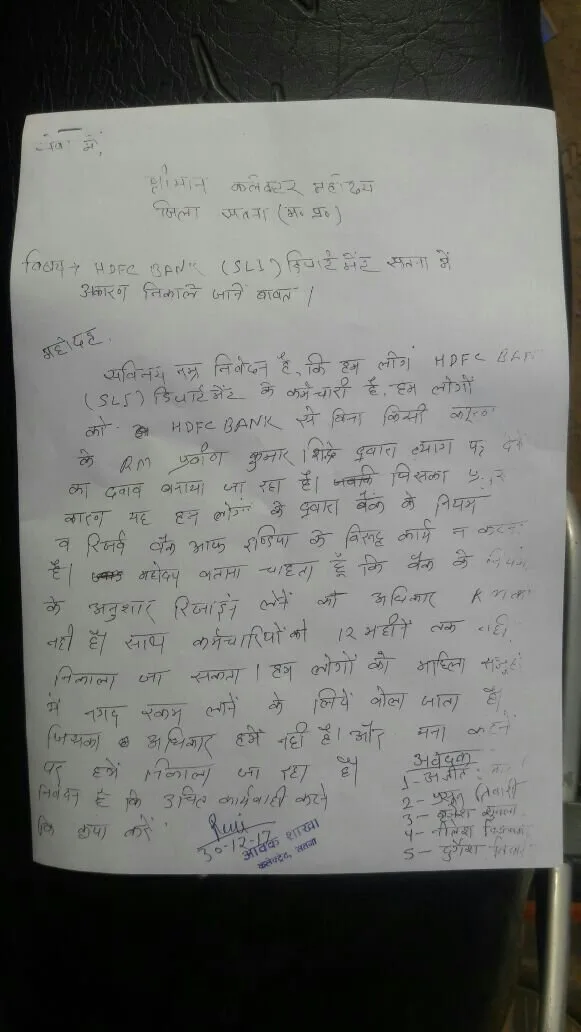 सेवा में,
श्रीमान कलेक्टर महोदय
जिला सतना (म० प्र०)
विषय → HDFC BANK (SLI) डिपार्टमेंट सतना में
अकारण निकाले जाने बावत |
महोदय,
सविनय नम्र निवेदन है, कि हम लोग HDFC BANK
(SLI) डिपार्टमेंट के कर्मचारी है, हम लोगों
को HDFC BANK से बिना किसी कारण
के RM प्रवीण कुमार द्वारा त्याग पत्र देने
का दबाव बनाया जा रहा है। जिसका
कारण यह हम लोगों के द्वारा बैंक के नियम
व रिजर्व बैंक आफ इण्डिया के विरुद्ध कार्य न करना
है। महोदय बताना चाहता हूँ कि बैंक के नियम
के अनुशार रिजाईन लेने का अधिकार RM का
नही है। साथ कर्मचारियों को 12 महीने तक नही
निकाला जा सकता | हम लोगों को महिला समूह
में नगद रकम लाने के लिये बोला जाता है।
जिसका अधिकार हमें नही है। और मना करने
पर हमें निकाला जा रहा है।
निवेदन है कि उचित कार्यवाही करने
कि कृपा करें
30-12-17
आवक शाखा
कलेक्ट्रेट, सतना
आवेदक
1-
2- तिवारी
3-
4- नीलेश
5- दुर्गेश